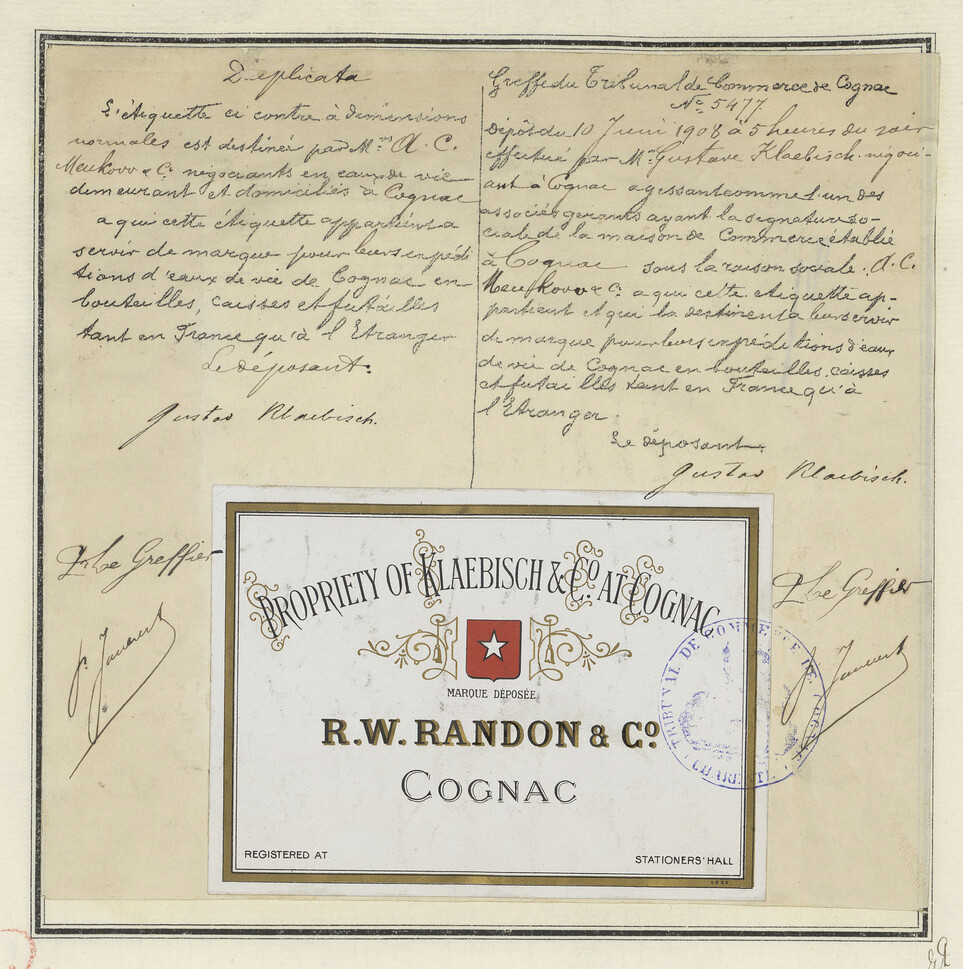 Duplicata
L'étiquette ci contre à dimensions
normales est destinée par Mrs A. C.
Meukow & Co négociants en eaux de vie
demeurant et domiciliés à Cognac
a qui cette étiquette appartient a
servir de marque pour leurs expédi
tions d'eaux de vie de Cognac en
bouteilles, caisses et futailles
tant en France qu'à l'Etranger
Le déposant.
Gustav Klaebisch.
Greffe du Tribunal de Commerce de Cognac
No 5477.
Dépôt du 10 Juin 1908 à 5 heures du soir
effectué par Mr Gustave Klaebisch négoci-
ant à Cognac agissant comme l'un des
associés gerants ayant la signature so-
ciale de la maison de Commerce établie
à Cognac sous la raison sociale. A. C.
Meukow & Co a qui cette etiquette ap-
partient et qui la destinent a leur servir
de marque pour leurs expéditions d'eaux
de vie de Cognac en bouteilles, caisses
et futailles tant en France qu'à
l'Etranger.
Le déposant.
Gustav Klaebisch.
Le Greffier
Le Greffier
PROPRIETY OF KLAEBISCH & Co. AT COGNAC
MARQUE DÉPOSÉE
R.W. RANDON & Co.
COGNAC
REGISTERED AT
STATIONERS' HALL
TRIBUNAL DE COMMERCE DE COGNAC